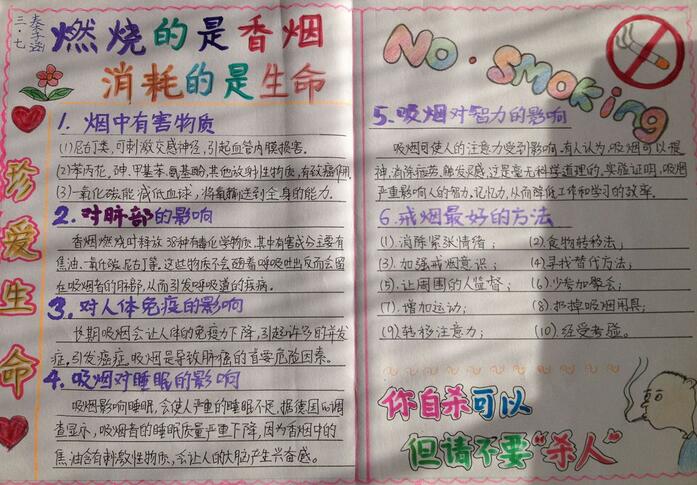 三.七
秦子涵
燃烧的是香烟
消耗的是生命
珍爱生命
1. 烟中有害物质
(1)尼古丁类,可刺激交感神经,引起血管内膜损害。
(2)苯丙芘,砷,甲基苯,氨基酚,其他放射性物质,有致癌作用.
(3)一氧化碳能减低血球,将氧输送到全身的能力.
2. 对肺部的影响
香烟燃烧时释放38种有毒化学物质,其中有害成分主要有
焦油、一氧化碳、尼古丁等。这些物质不会随着呼吸吐出反而会留
在吸烟者的肺部,从而引发呼吸道的疾病。
3. 对人体免疫的影响
长期吸烟会让人体的免疫力下降,引起许多的并发
症,引发癌症,吸烟是导致肺癌的首要危险因素。
4. 吸烟对睡眠的影响
吸烟影响睡眠,会使人严重的睡眠不足,据德国的调
查显示,吸烟者的睡眠质量严重下降,因为香烟中的
焦油含有刺激性物质,会让人的大脑产生兴奋感。
NO.SMOKing
5. 吸烟对智力的影响
吸烟可使人的注意力受到影响,有人认为,吸烟可以提
神,消除疲劳,触发灵感,这是毫无科学道理的,实验证明,吸烟
严重影响人的智力、记忆力,从而降低工作和学习的效率.
6. 戒烟最好的方法
(1).消除紧张情绪; (2).食物转移法;
(3).加强戒烟意识; (4).寻找替代方法;
(5).让周围的人监督; (6).少参加聚会;
(7).增加运动; (8).扔掉吸烟用具;
(9).转移注意力; (10).经受考验。
你自杀可以
但请不要“杀人”